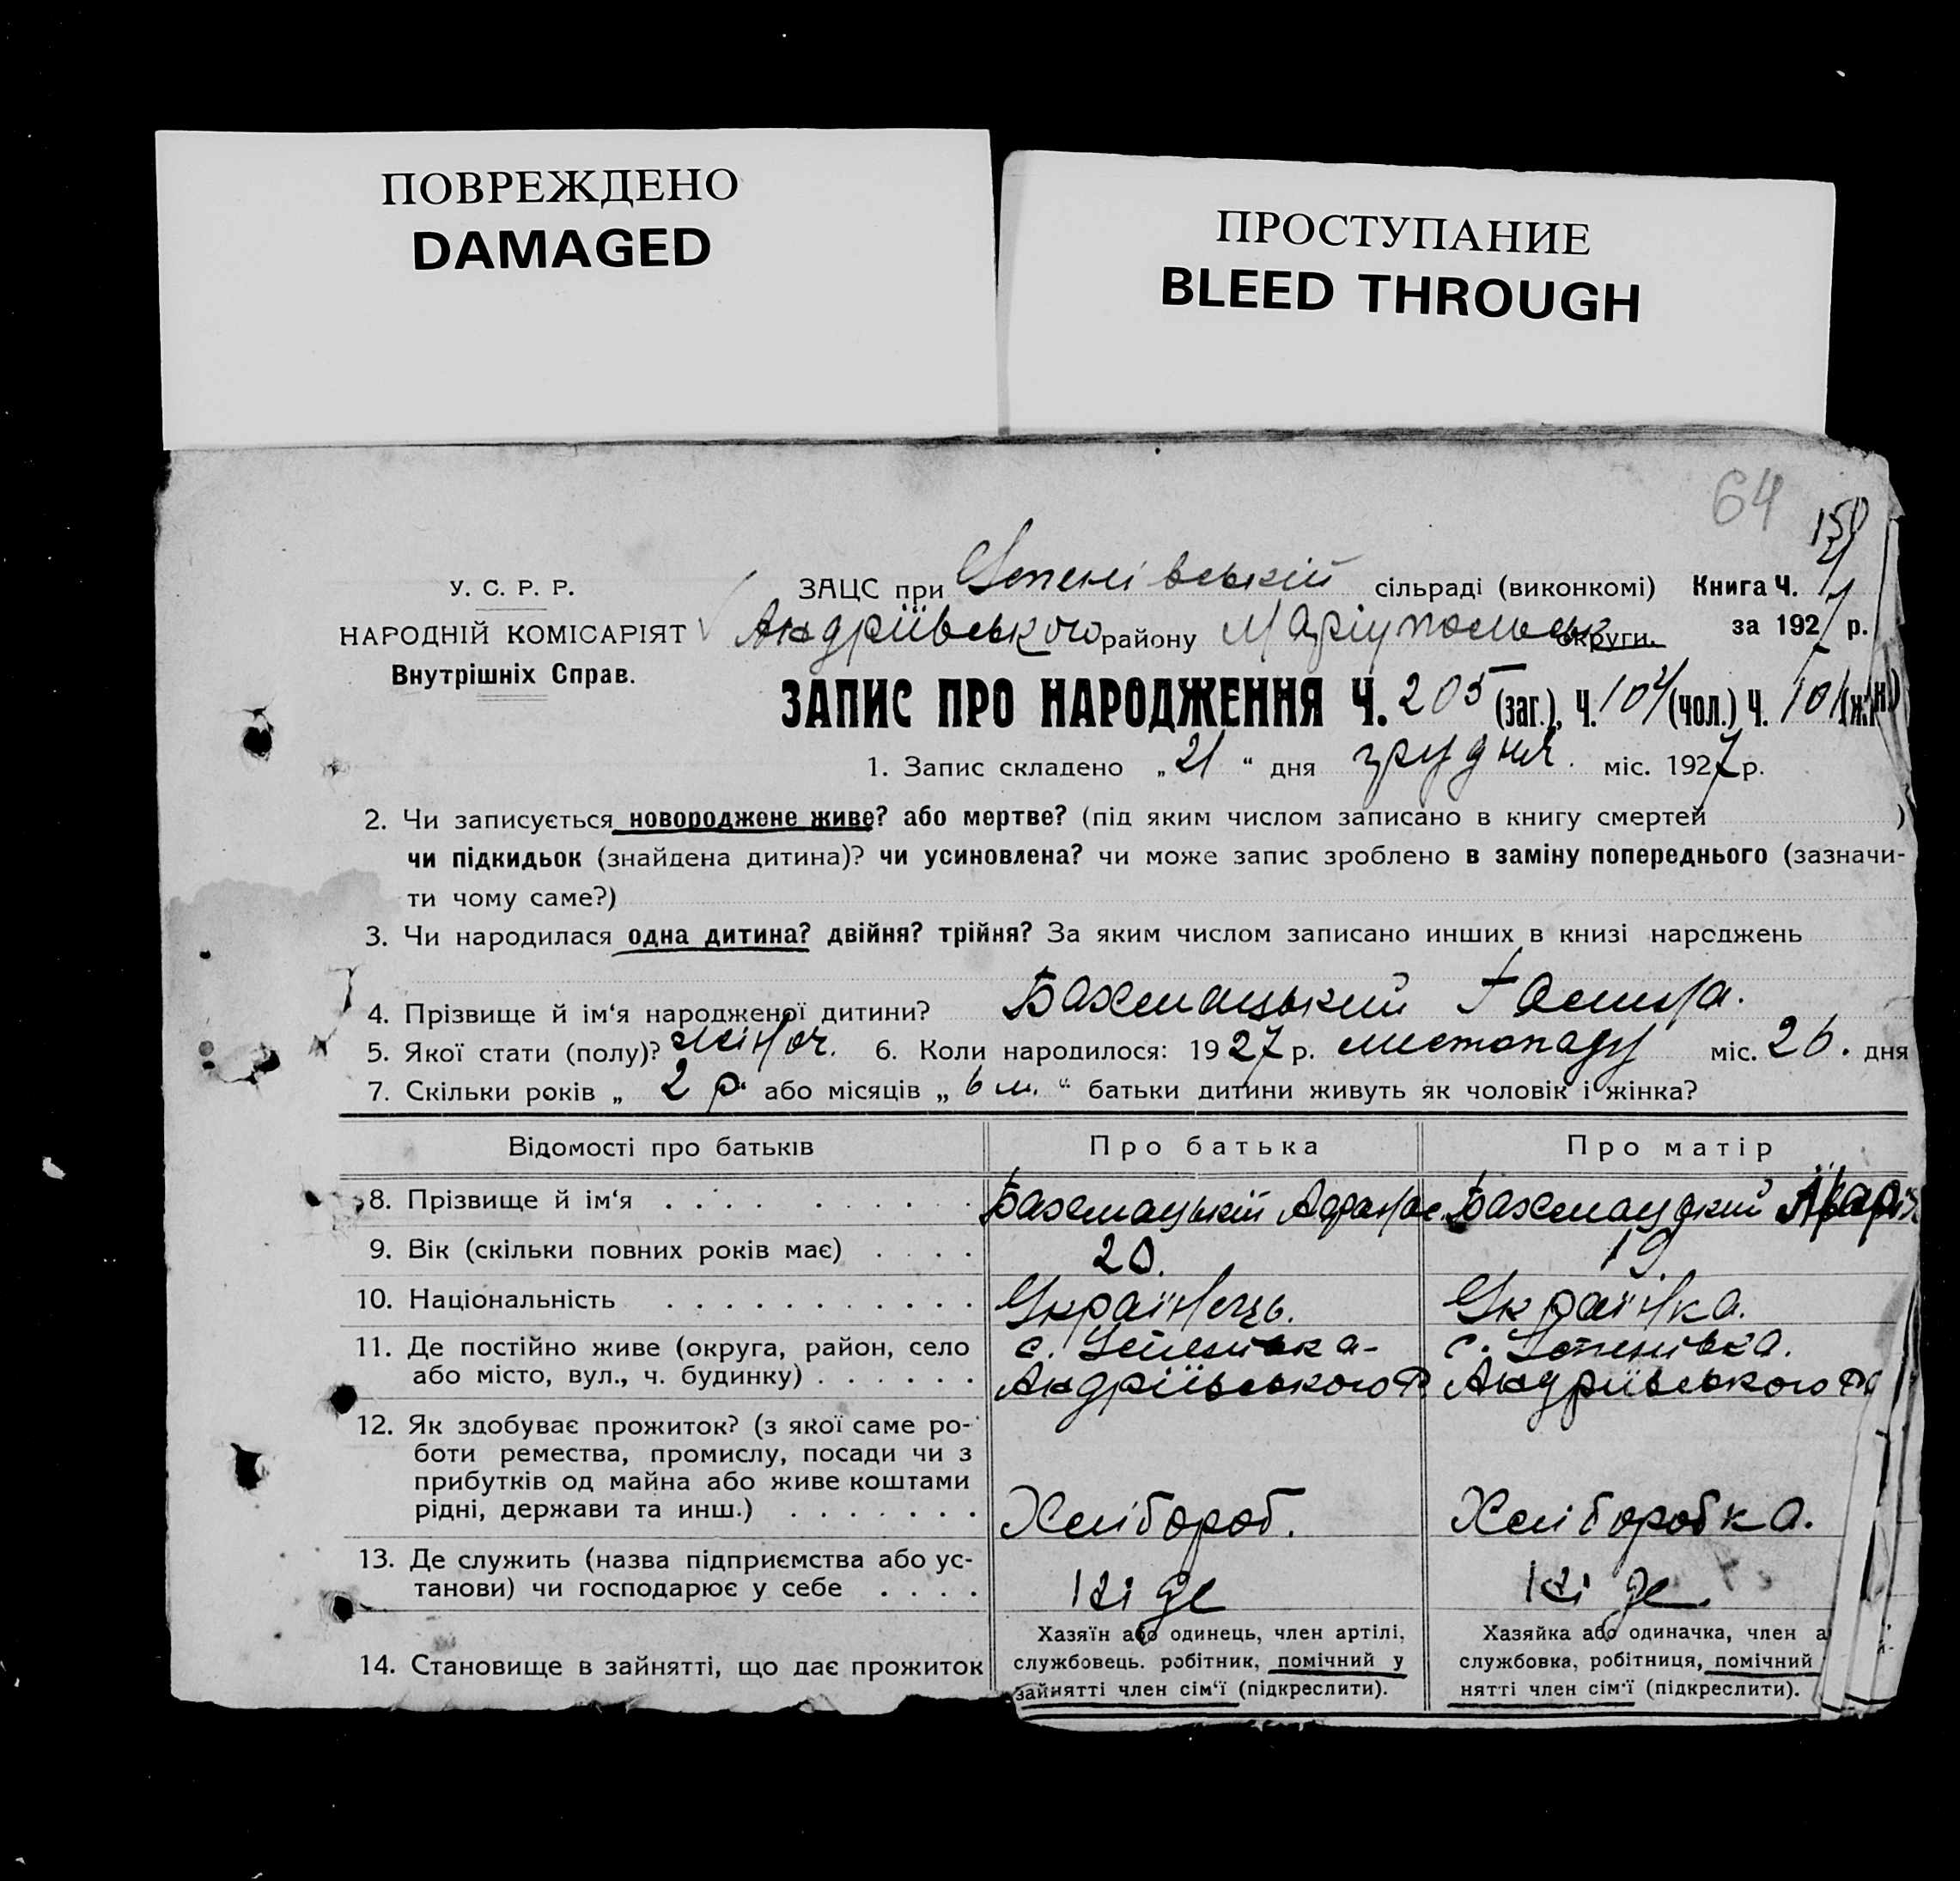 ПОВРЕЖДЕНО
DAMAGED
ПРОСТУПАНИЕ
BLEED THROUGH
64
У. С. Р. Р.
НАРОДНІЙ КОМІСАРІЯТ
Внутрішніх Справ.
ЗАЦС при Успенівській сільраді (виконкомі) Книга Ч.
Андріївського району Маріупольськ округи. за 1927 р.
ЗАПИС ПРО НАРОДЖЕННЯ Ч. 205 (заг.), Ч. 104 (чол.) Ч. 101
1. Запис складено „21“ дня грудня. міс. 1927 р.
2. Чи записується новороджене живе? або мертве? (під яким числом записано в книгу смертей )
чи підкидьок (знайдена дитина)? чи усиновлена? чи може запис зроблено в заміну попереднього (зазначи-
ти чому саме?)
3. Чи народилася одна дитина? двійня? трійня? За яким числом записано инших в книзі народжень
4. Прізвище й ім‘я народженої дитини? Бахмацький
5. Якої стати (полу)? жіноч. 6. Коли народилося: 1927 р. листопаду міс. 26. дня
7. Скільки років „ 2 р. або місяців „ 6 м. “ батьки дитини живуть як чоловік і жінка?
Відомості про батьків Про батька Про матір
8. Прізвище й ім‘я Бахмацький Афанас. Бахмацький
9. Вік (скільки повних років має) 20. 19.
10. Національність Українець. Українка.
11. Де постійно живе (округа, район, село с. Успенівка- с. Успенівка.
або місто, вул., ч. будинку) Андріївського Р Андріївського
12. Як здобуває прожиток? (з якої саме ро-
боти ремества, промислу, посади чи з
прибутків од майна або живе коштами
рідні, держави та инш.) Хлібороб. Хліборобка.
13. Де служить (назва підприємства або ус-
танови) чи господарює у себе ні де ні де.
14. Становище в зайнятті, що дає прожиток
Хазяїн або одинець, член артілі,
службовець. робітник, помічний у
зайнятті член сім‘ї (підкреслити).
Хазяйка або одиначка, член
службовка, робітниця, помічний
нятті член сім‘ї (підкреслити).